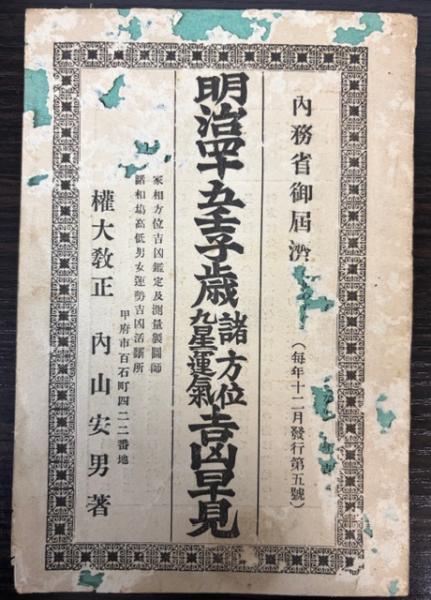 內務省御屆濟
(每年十二月發行第五號)
明治四十五壬子歲諸方位九星運氣吉凶早見
家相方位吉凶鑑定及測量製圖師
諸相塲高低男女運勢吉凶活斷所
甲府市百石町四二二番地
權大敎正 內山安男著